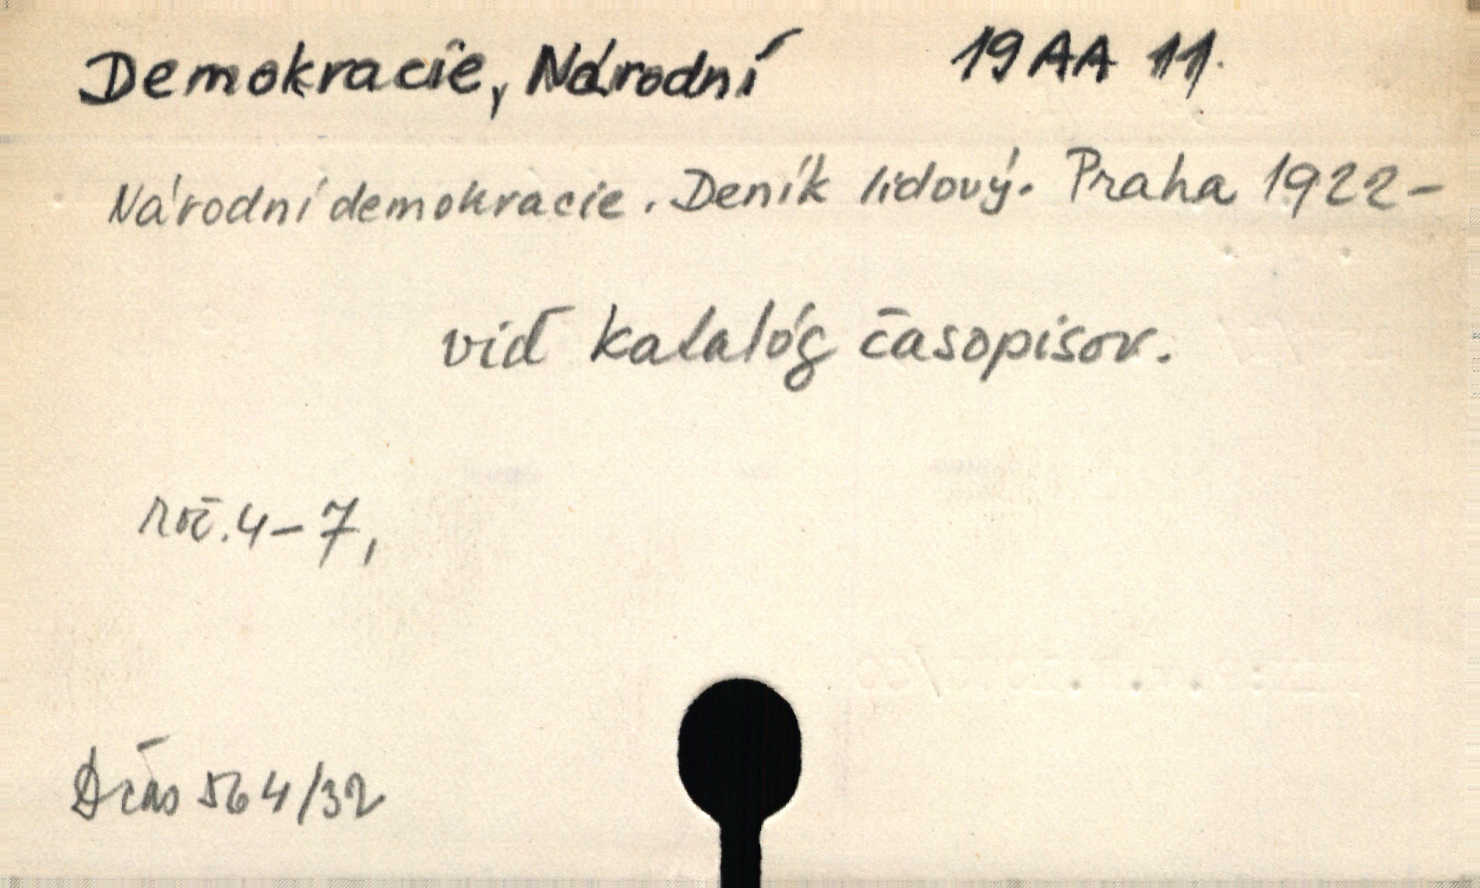 Demokracie, Národní 19 AA 11.
Národní demokracie. Deník lidový. Praha 1922-
viď katalóg časopisov.
roč. 4-7,
D čas 564/32